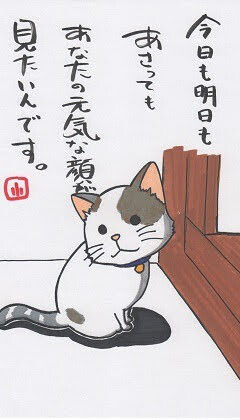 今日も明日も
あさっても
あなたの元気な顔が
見たいんです。